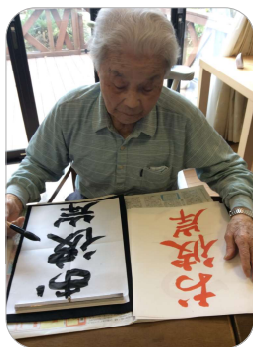 お彼岸
お彼岸